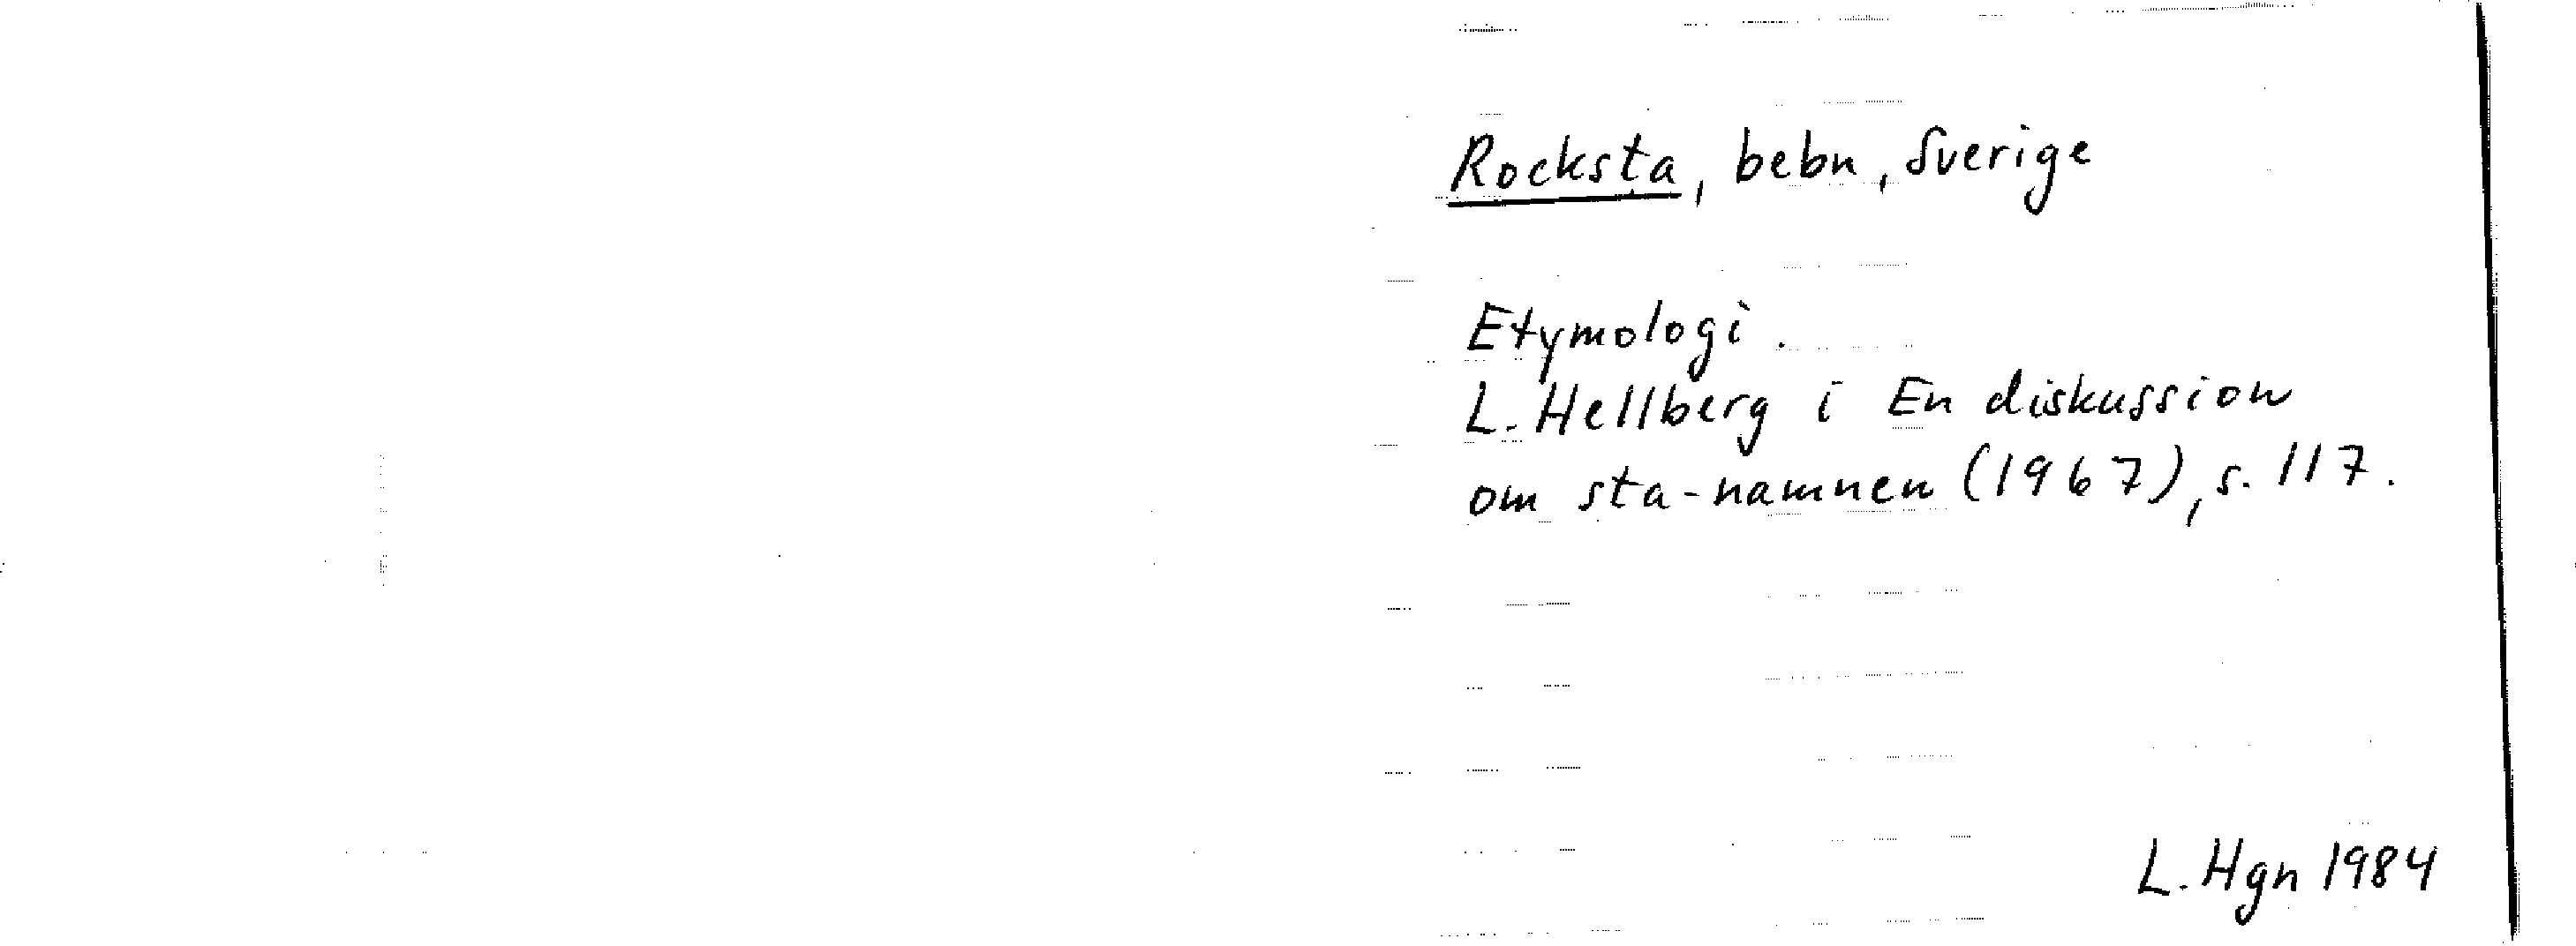 Rocksta, bebn, Sverige
Etymologi.
L. Hellberg i En diskussion
om sta-namnen (1967), s. 117.
L. Hgn 1984